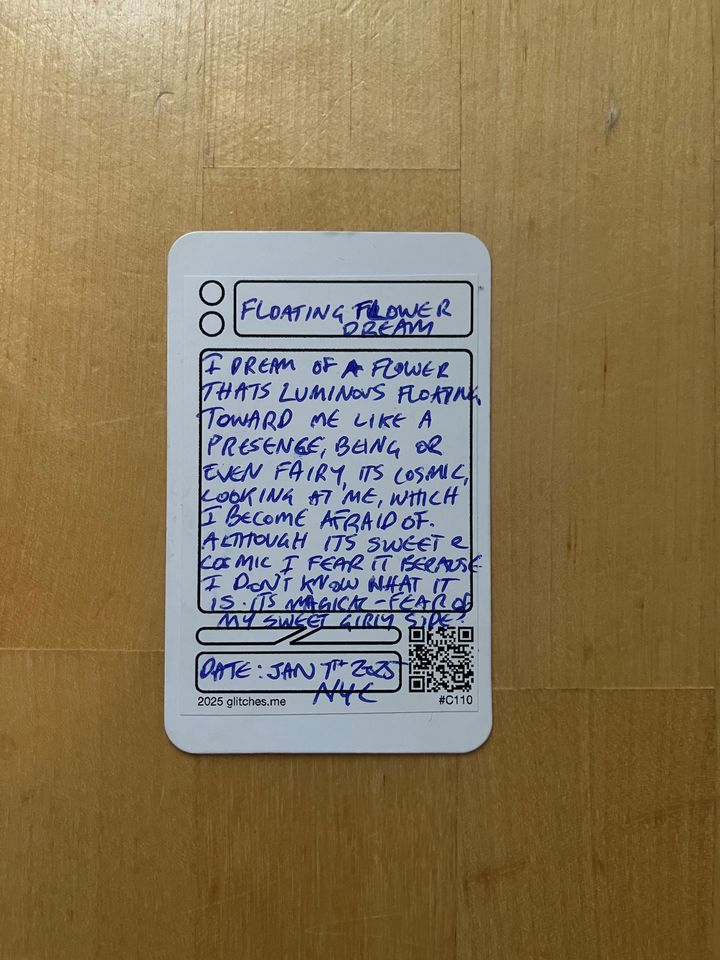 FLOATING FLOWER
DREAM
I DREAM OF A FLOWER
THATS LUMINOUS FLOATING
TOWARD ME LIKE A
PRESENCE, BEING OR
EVEN FAIRY, ITS COSMIC,
LOOKING AT ME, WHICH
I BECOME AFRAID OF.
ALTHOUGH ITS SWEET &
COSMIC I FEAR IT BECAUSE
I DON'T KNOW WHAT IT
IS. ITS MAGICAL - FEAR OF
MY SWEET GIRLY SIDE?
DATE: JAN 7TH 2025
NYC
2025 glitches.me
#C110